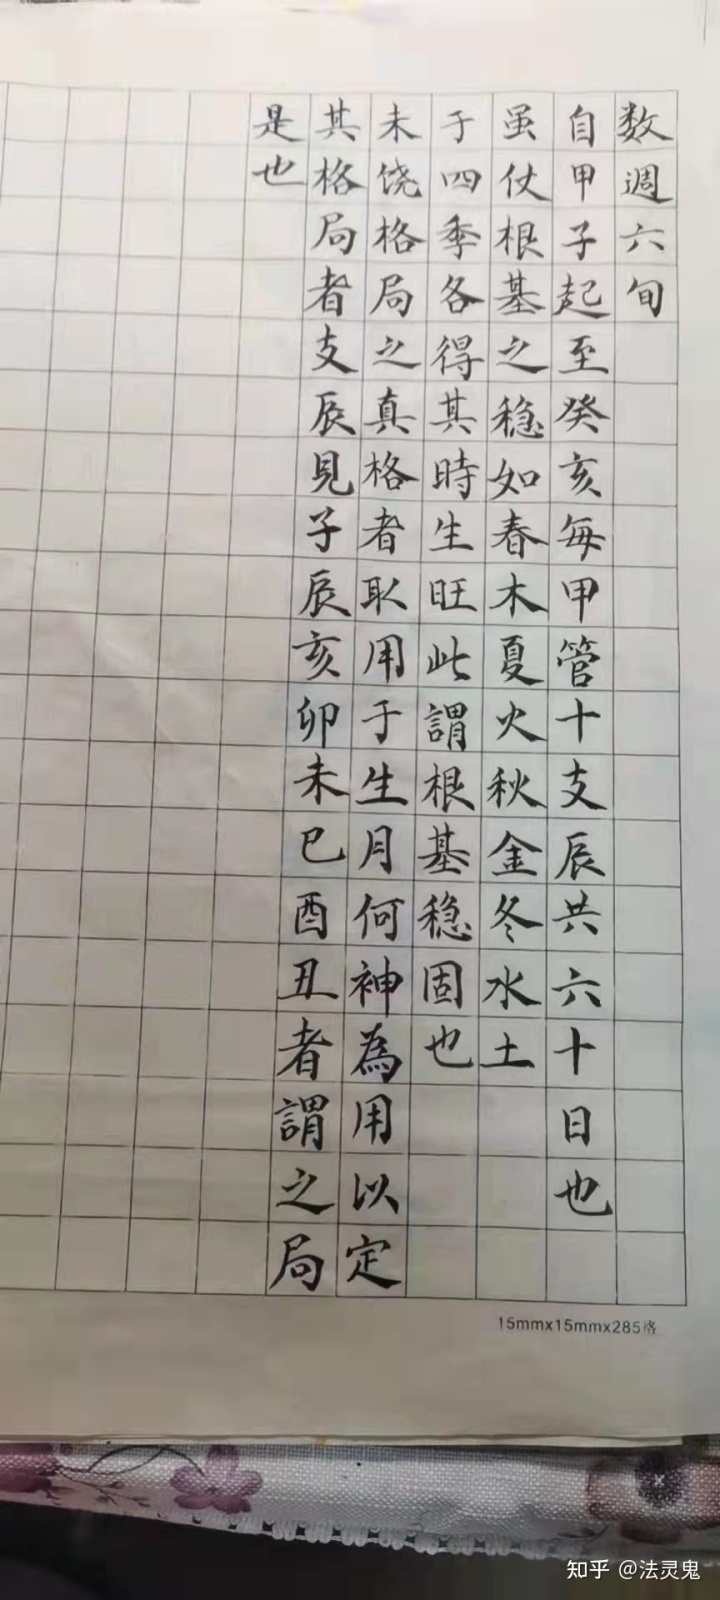 数週六旬
自甲子起至癸亥每甲管十支辰共六十日也
虽仗根基之稳如春木夏火秋金冬水土
于四季各得其時生旺此謂根基稳固也
未饶格局之真格者取用于生月何神為用以定
其格局者支辰見子辰亥卯未巳酉丑者謂之局
是也
15mmx15mmx285格
知乎 @法灵鬼